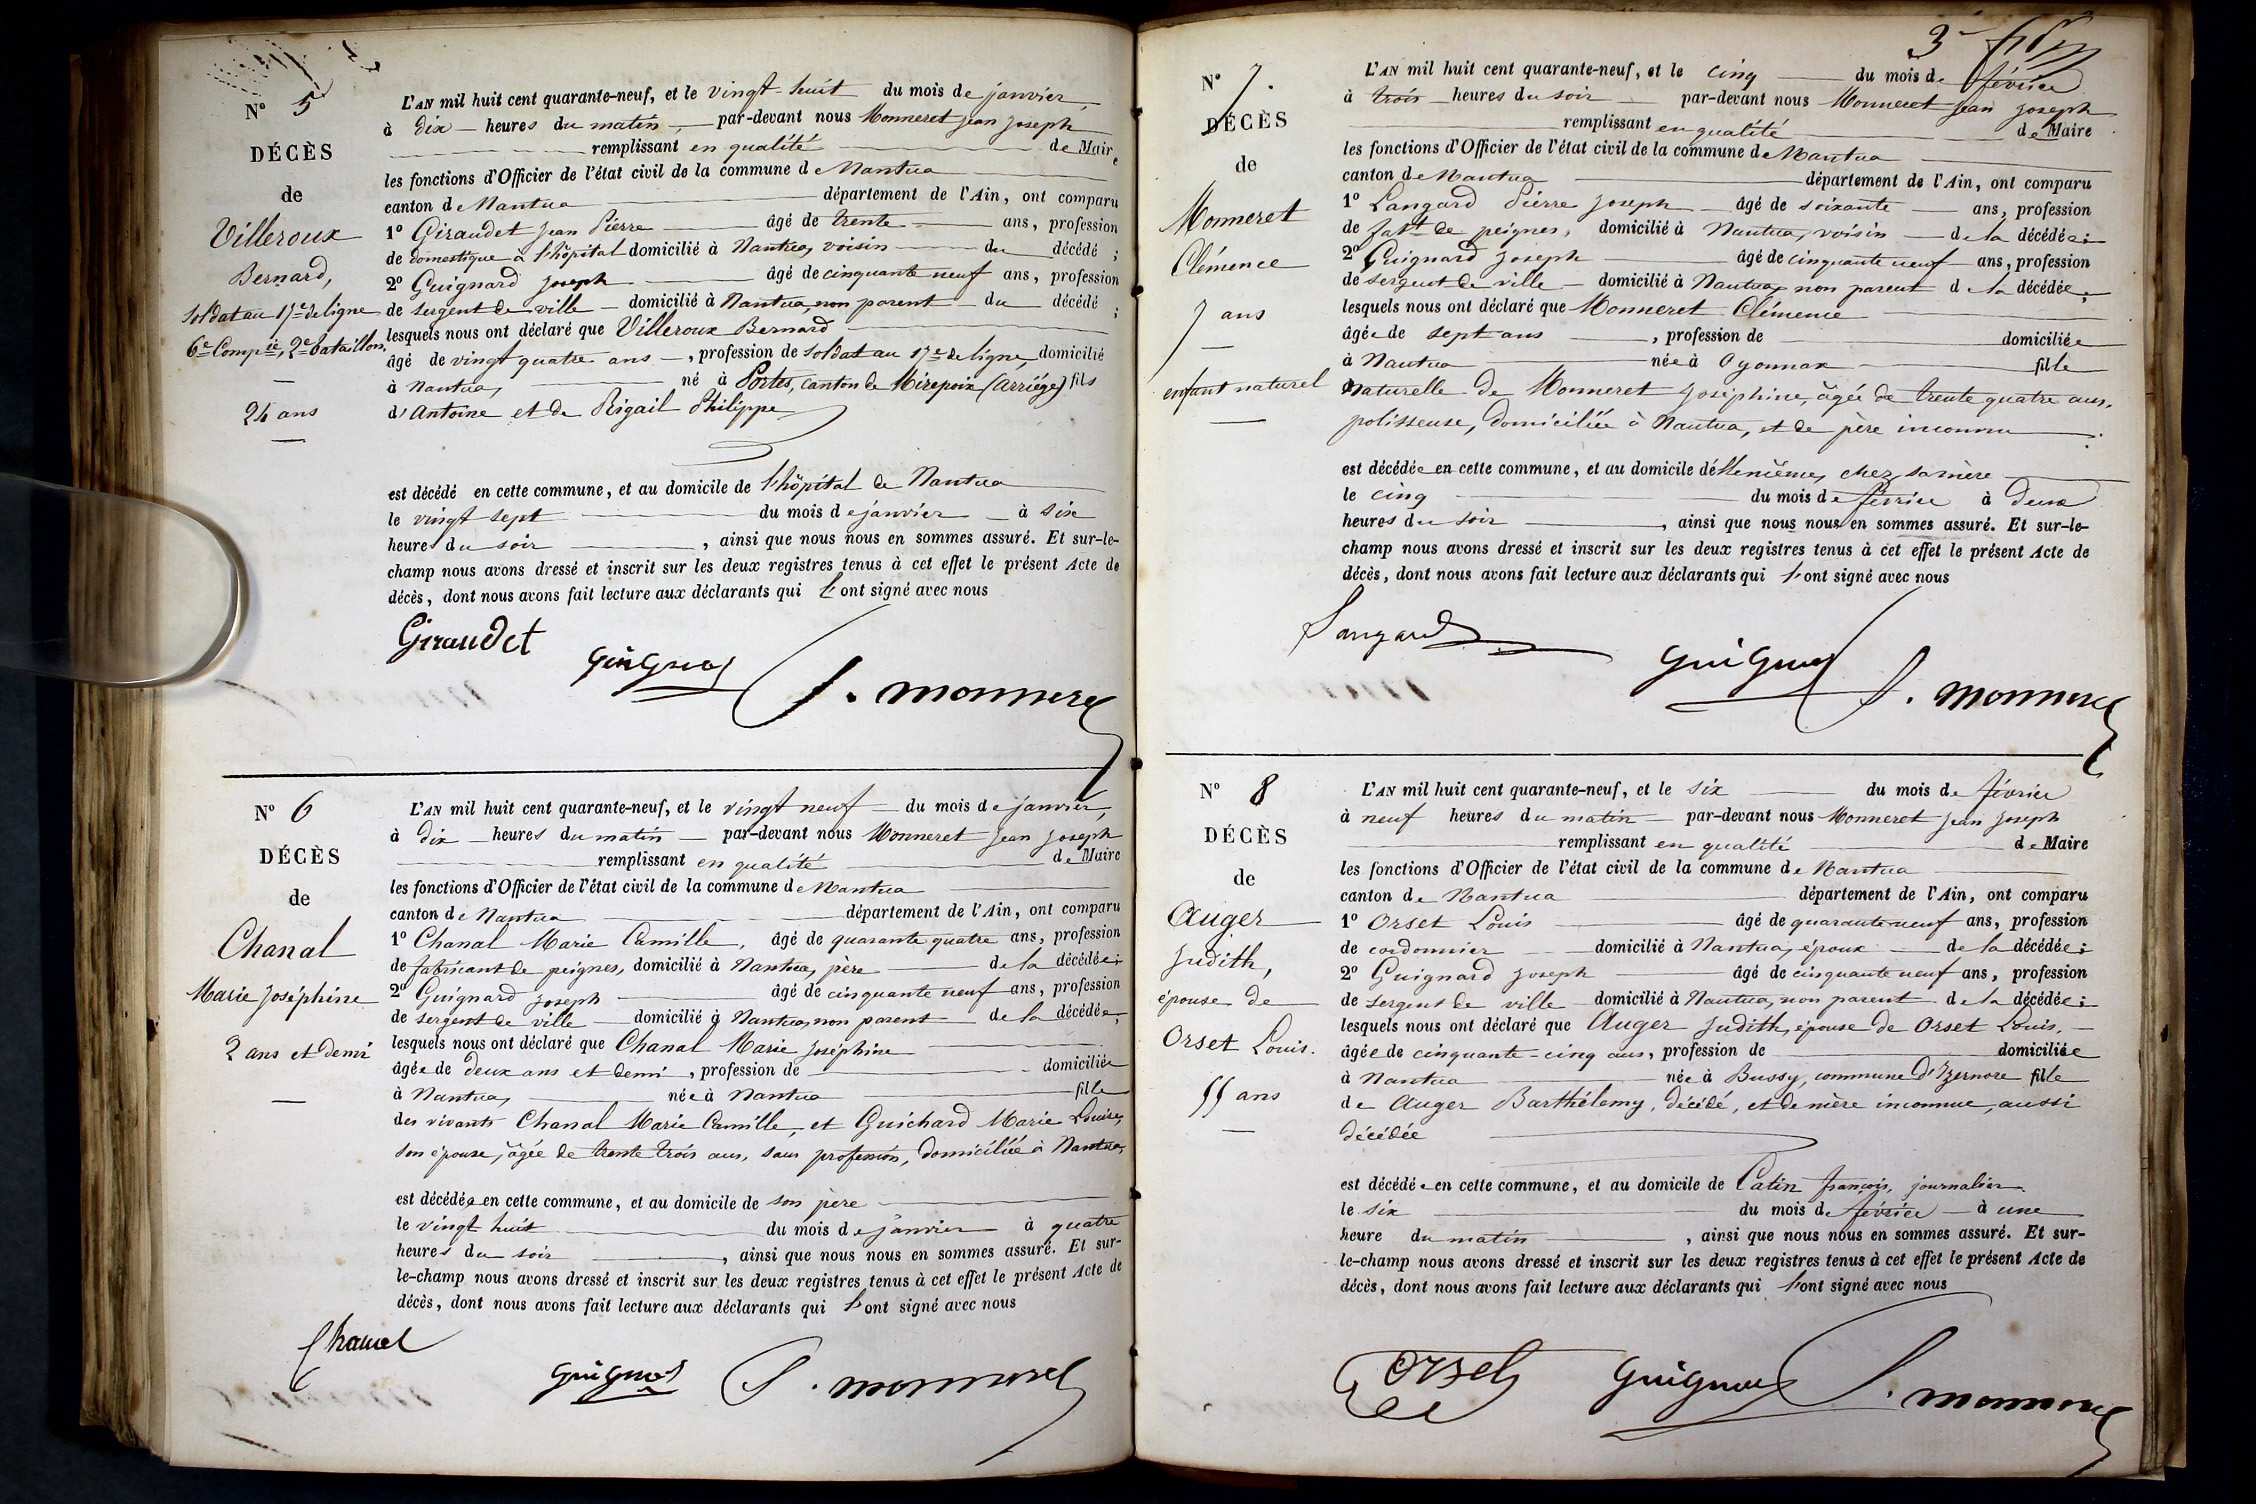 N° 5
DÉCÈS
de
Villeroux
Bernard,
soldat au 17e de ligne
6e Compie, 2e bataillon.
24 ans
L'AN mil huit cent quarante-neuf, et le vingt-huit du mois de janvier,
à dix heures du matin, par-devant nous Monneret Jean Joseph
remplissant en qualité de Maire
les fonctions d'Officier de l'état civil de la commune de Nantua
canton de Nantua département de l'Ain, ont comparu
1° Giraudet Jean Pierre âgé de trente ans, profession
de domestique à l'hôpital domicilié à Nantua, voisin du décédé ;
2° Guignard Joseph âgé de cinquante neuf ans, profession
de sergent de ville domicilié à Nantua, non parent du décédé ;
lesquels nous ont déclaré que Villeroux Bernard
âgé de vingt quatre ans, profession de soldat au 17e de ligne, domicilié
à Nantua, né à Portes, canton de Mirepoix (Arriége) fils
d'Antoine et de Rigail Philippe
est décédé en cette commune, et au domicile de l'hôpital de Nantua
le vingt sept du mois de janvier à six
heures du soir, ainsi que nous nous en sommes assuré. Et sur-le-
champ nous avons dressé et inscrit sur les deux registres tenus à cet effet le présent Acte de
décès, dont nous avons fait lecture aux déclarants qui l'ont signé avec nous
Giraudet
Guignard
J. Monneret
N° 6
DÉCÈS
de
Chanal
Marie Joséphine
2 ans et demi
L'AN mil huit cent quarante-neuf, et le vingt neuf du mois de janvier,
à dix heures du matin par-devant nous Monneret Jean Joseph
remplissant en qualité de Maire
les fonctions d'Officier de l'état civil de la commune de Nantua
canton de Nantua département de l'Ain, ont comparu
1° Chanal Marie Camille, âgé de quarante quatre ans, profession
de fabricant de peignes, domicilié à Nantua, père de la décédée ;
2° Guignard Joseph âgé de cinquante neuf ans, profession
de sergent de ville domicilié à Nantua, non parent de la décédée ;
lesquels nous ont déclaré que Chanal Marie Joséphine
âgée de deux ans et demi, profession de domiciliée
à Nantua, née à Nantua fille
des vivants Chanal Marie Camille, et Guichard Marie Louise,
son épouse, âgée de trente trois ans, sans profession, domiciliée à Nantua,
est décédée en cette commune, et au domicile de son père
le vingt huit du mois de janvier à quatre
heures du soir, ainsi que nous nous en sommes assuré. Et sur-
le-champ nous avons dressé et inscrit sur les deux registres tenus à cet effet le présent Acte de
décès, dont nous avons fait lecture aux déclarants qui l'ont signé avec nous
Chanal
Guignard
J. Monneret
3
N° 7.
DÉCÈS
de
Monneret
Clémence
7 ans
enfant naturel
L'AN mil huit cent quarante-neuf, et le cinq du mois de février
à trois heures du soir par-devant nous Monneret Jean Joseph
remplissant en qualité de Maire
les fonctions d'Officier de l'état civil de la commune de Nantua
canton de Nantua département de l'Ain, ont comparu
1° Langard Pierre Joseph âgé de soixante ans, profession
de fabt de peignes, domicilié à Nantua, voisin de la décédée ;
2° Guignard Joseph âgé de cinquante neuf ans, profession
de sergent de ville domicilié à Nantua, non parent de la décédée ;
lesquels nous ont déclaré que Monneret Clémence
âgée de sept ans, profession de domiciliée
à Nantua née à Oyonnax fille
naturelle de Monneret Joséphine, âgée de trente quatre ans,
polisseuse, domiciliée à Nantua, et de père inconnu
est décédée en cette commune, et au domicile d'elle même, chez sa mère
le cinq du mois de février à deux
heures du soir, ainsi que nous nous en sommes assuré. Et sur-le-
champ nous avons dressé et inscrit sur les deux registres tenus à cet effet le présent Acte de
décès, dont nous avons fait lecture aux déclarants qui l'ont signé avec nous
Langard
Guignard
J. Monneret
N° 8
DÉCÈS
de
Auger
Judith,
épouse de
Orset Louis.
55 ans
L'AN mil huit cent quarante-neuf, et le six du mois de février
à neuf heures du matin par-devant nous Monneret Jean Joseph
remplissant en qualité de Maire
les fonctions d'Officier de l'état civil de la commune de Nantua
canton de Nantua département de l'Ain, ont comparu
1° Orset Louis âgé de quarante neuf ans, profession
de cordonnier domicilié à Nantua, époux de la décédée ;
2° Guignard Joseph âgé de cinquante neuf ans, profession
de sergent de ville domicilié à Nantua, non parent de la décédée ;
lesquels nous ont déclaré que Auger Judith, épouse de Orset Louis,
âgée de cinquante-cinq ans, profession de domiciliée
à Nantua née à Bussy, commune d'Izernore fille
de Auger Barthélemy, décédé, et de mère inconnue, aussi
décédée
est décédée en cette commune, et au domicile de Catin françois, journalier
le six du mois de février à une
heure du matin, ainsi que nous nous en sommes assuré. Et sur-
le-champ nous avons dressé et inscrit sur les deux registres tenus à cet effet le présent Acte de
décès, dont nous avons fait lecture aux déclarants qui l'ont signé avec nous
Orset
Guignard
J. Monneret